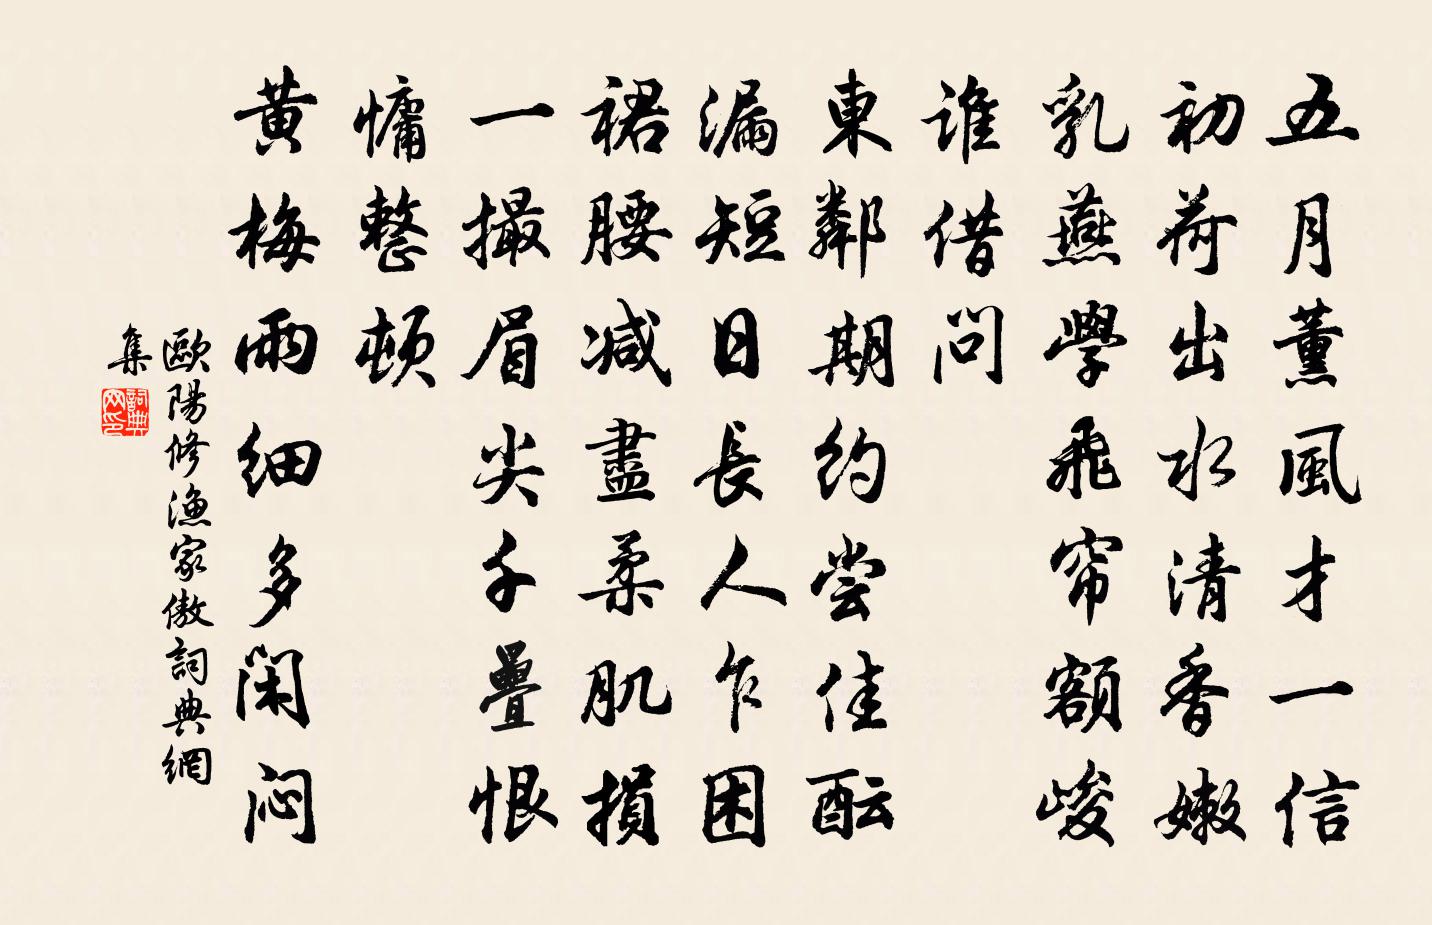 五月薰風才一信
初荷出水清香嫩
乳燕學飛帘額峻
谁借問
東鄰期約尝佳酝
漏短日長人乍困
裙腰减盡柔肌損
一撮眉尖千疊恨
慵整頓
黄梅雨细多闲闷
歐陽修漁家傲詞典網
集
詞典
网印